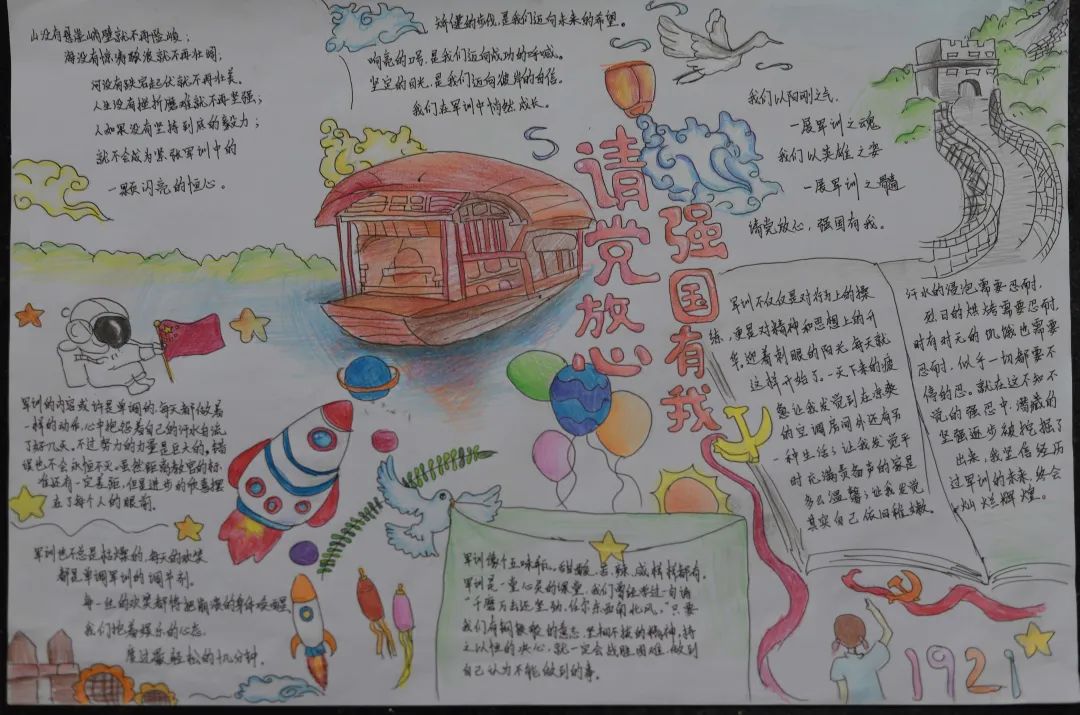 山没有悬崖峭壁就不再险峻；
海没有惊涛骇浪就不再壮阔；
河没有跌宕起伏就不再壮美。
人生没有挫折磨难就不再坚强；
人如果没有坚持到底的毅力；
就不会成为紧张军训中的
一颗闪亮的恒心。
矫健的步伐，是我们迈向未来的希望。
响亮的口号，是我们迈向成功的呼喊。
坚定的目光，是我们迈向彼岸的自信。
我们在军训中悄然成长。
请党放心
强国有我
我们以阳刚之气，
一展军训之魂
我们以英雄之姿
一展军训之髓
请党放心，强国有我。
军训的内容或许是单调的，每天都做着
一样的动作，心中抱怨着自己的汗水白流
了好几天。不过努力的力量是巨大的。错
误也不会永恒不灭。虽然距离教官的标
准还有一定差距，但是进步的收喜摆
在了每个人的眼前。
军训也不总是枯燥的，每天的欢笑
都是单调军训的调节剂。
每一丝的欢笑都将把崩溃的身体唤醒
我们抱着娱乐的心态，
度过最轻松的几分钟。
军训像个五味瓶。甜、酸、苦、辣、咸样样都有。
军训是一堂心灵的课堂，我们曾经学过一句诗
“千磨万击还坚劲，任尔东西南北风。”只要
我们有钢铁般的意志，坚韧不拔的精神，持
之以恒的决心，就一定会战胜困难，做到
自己认为不能做到的事。
军训不仅仅是对行为上的操
练，更是对精神和思想上的升
华，迎着刺眼的阳光，每天就
这样开始了。一天下来的疲
惫让我发觉到在凉爽
的空调房间外还有另
一种生活；让我发觉平
时充满责备声的家是
多么温馨；让我发觉
其实自己依旧稚嫩。
汗水的浸泡需要忍耐，
烈日的烘烤需要忍耐，
时有时无的饥饿也需要
忍耐，似乎一切都要不
停的忍。就在这不知不
觉的强忍中，潜藏的
坚强逐步被挖掘了
出来，我坚信经历
过军训的未来，终会
灿烂辉煌。
1921